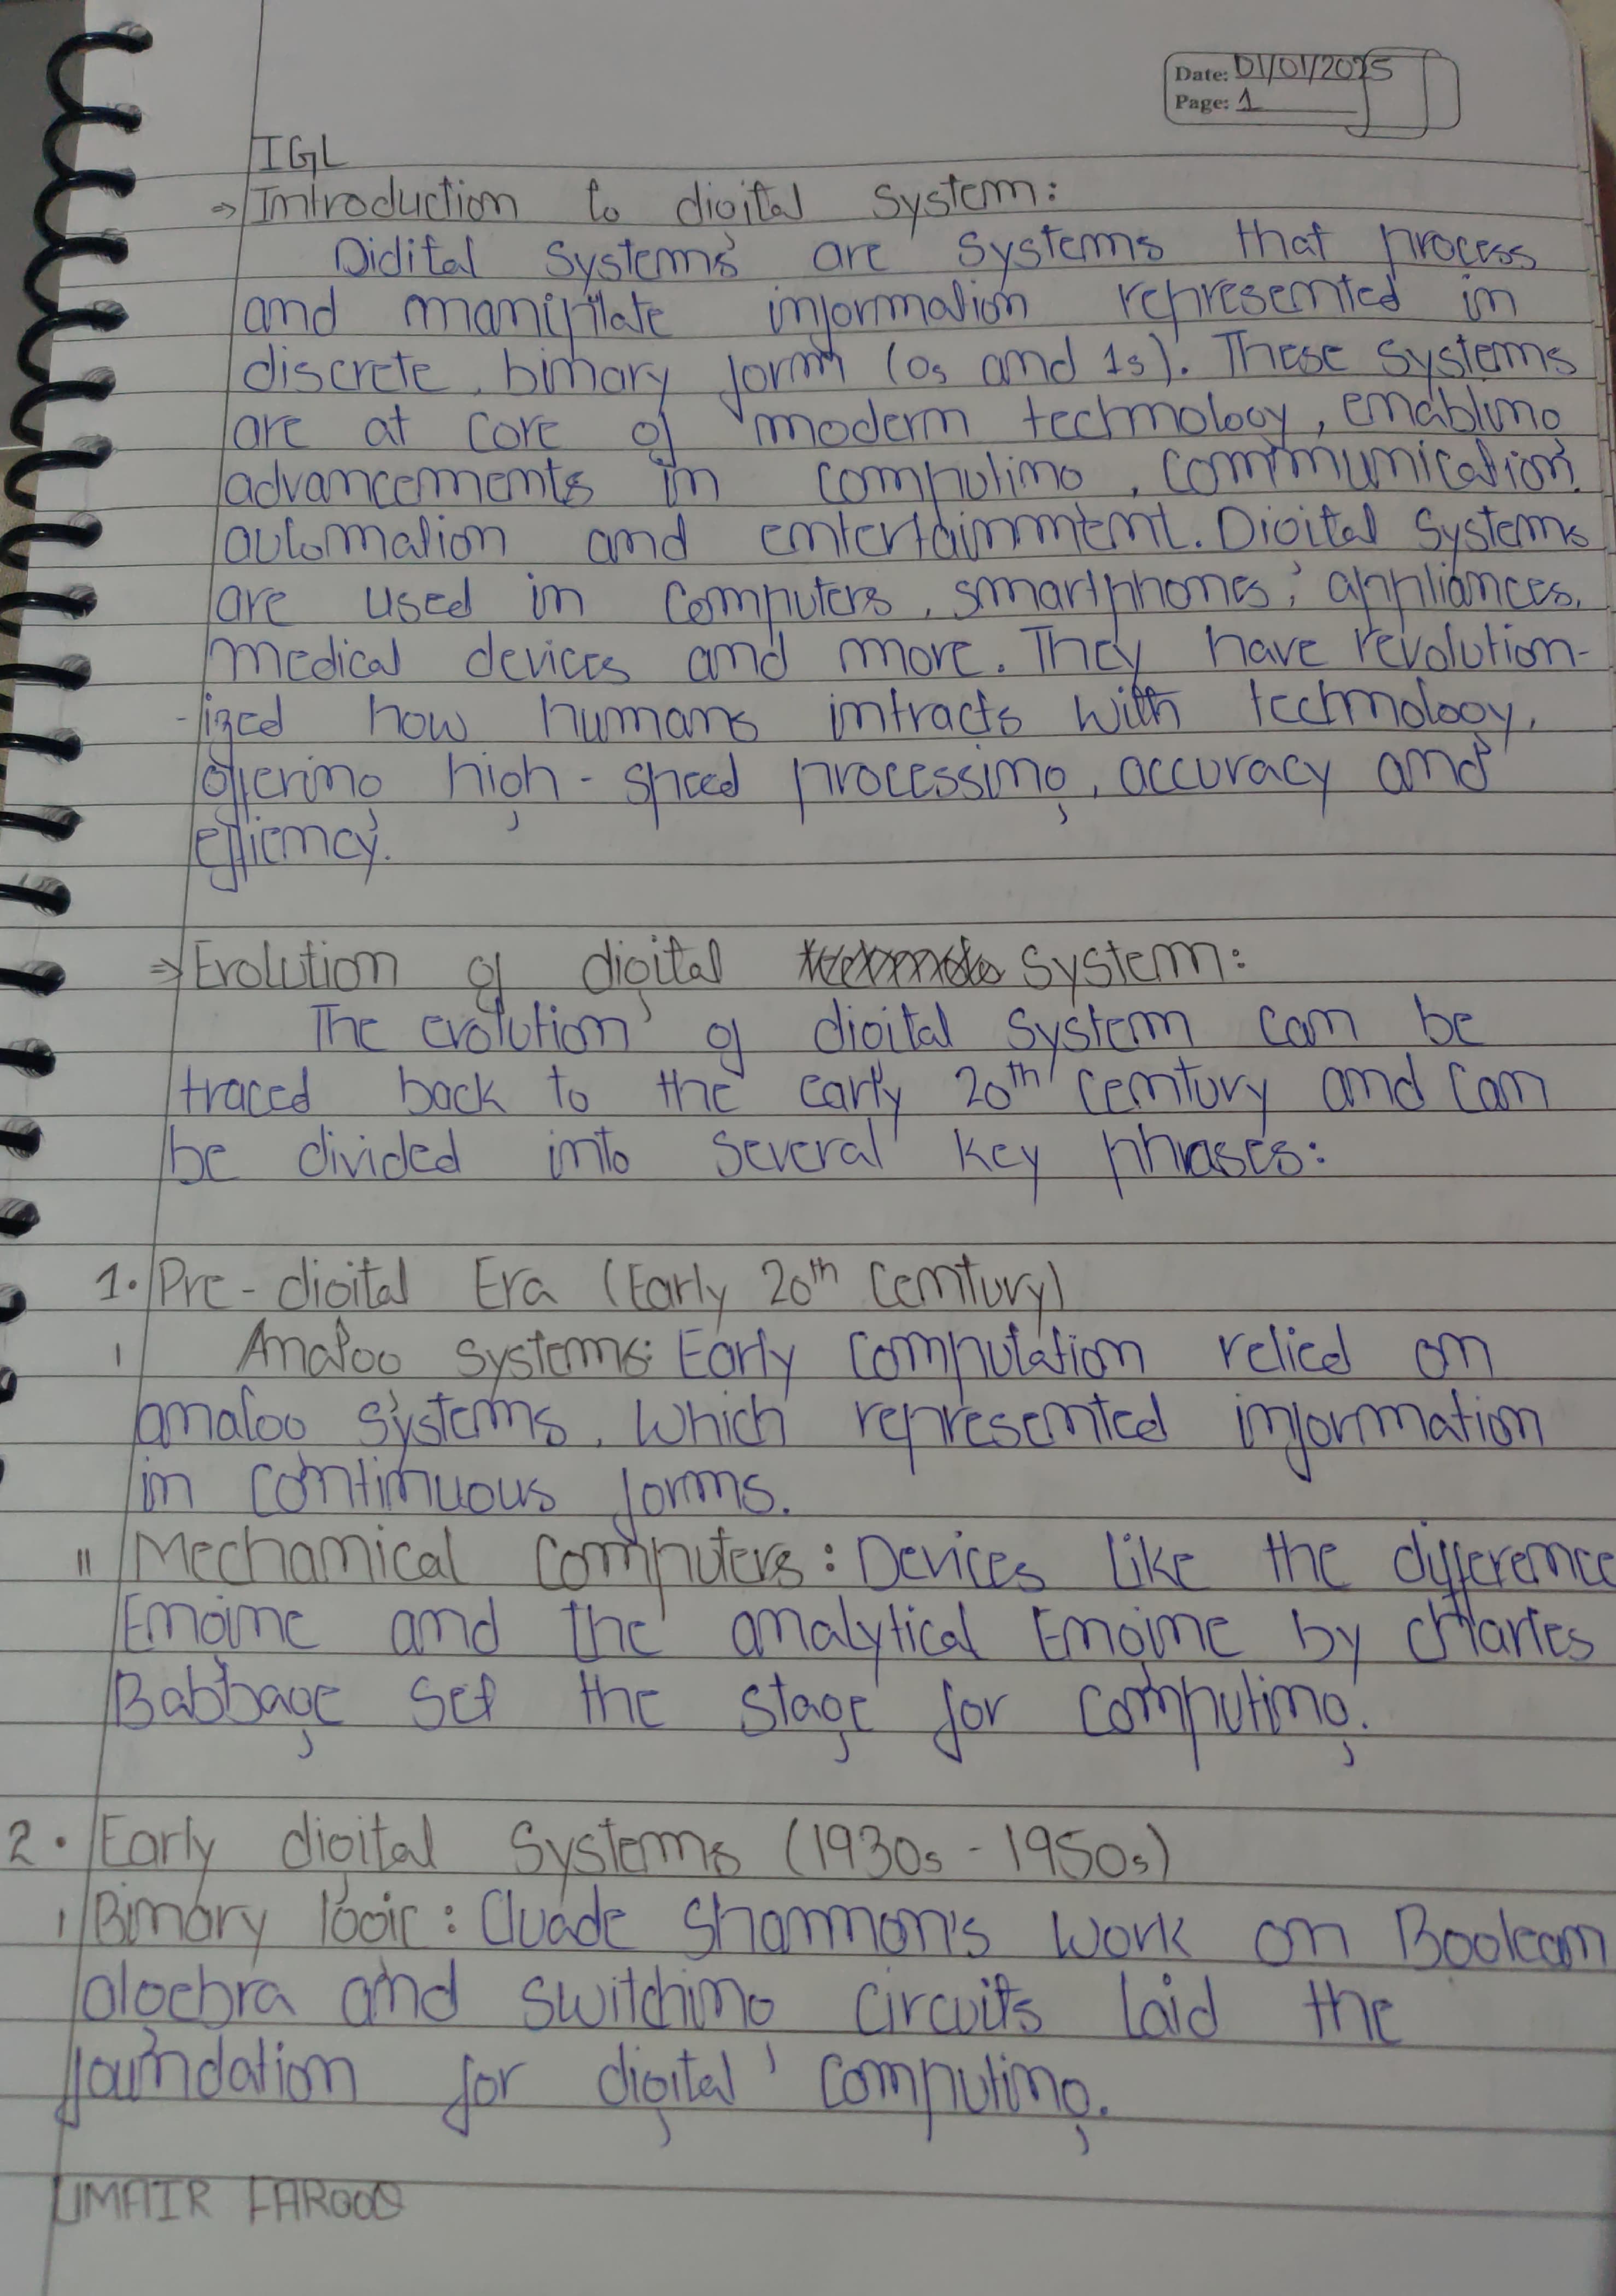 Date: 01/01/2025
Page: 1
IGL
⇒ Introduction to digital system:
Didital systems are systems that process
and manipilate information represented in
discrete, binary form (0s and 1s). These systems
are at core of modern technology, enabling
advancements in computing, communication,
automation and entertainmment. Digital systems
are used in computers, smartphones, appliances,
medical devices and more. They have revolution-
-ized how humans intracts with technology,
offering high-speed processing, accuracy and
effiency.
⇒ Evolution of digital system:
The evolution of digital system can be
traced back to the early 20th century and can
be divided into several key phrases:
1. Pre-digital Era (Early 20th Century)
I Analog systems: Early computation relied on
analog systems, which represented information
in continuous forms.
II Mechanical computers: Devices like the difference
Engine and the analytical Engine by charles
Babbage set the stage for computing.
2. Early digital Systems (1930s - 1950s)
I Binary logic: Cluade Shannon's work on Boolean
algebra and switching circuits laid the
foundation for digital computing.
UMAIR FAROOQ